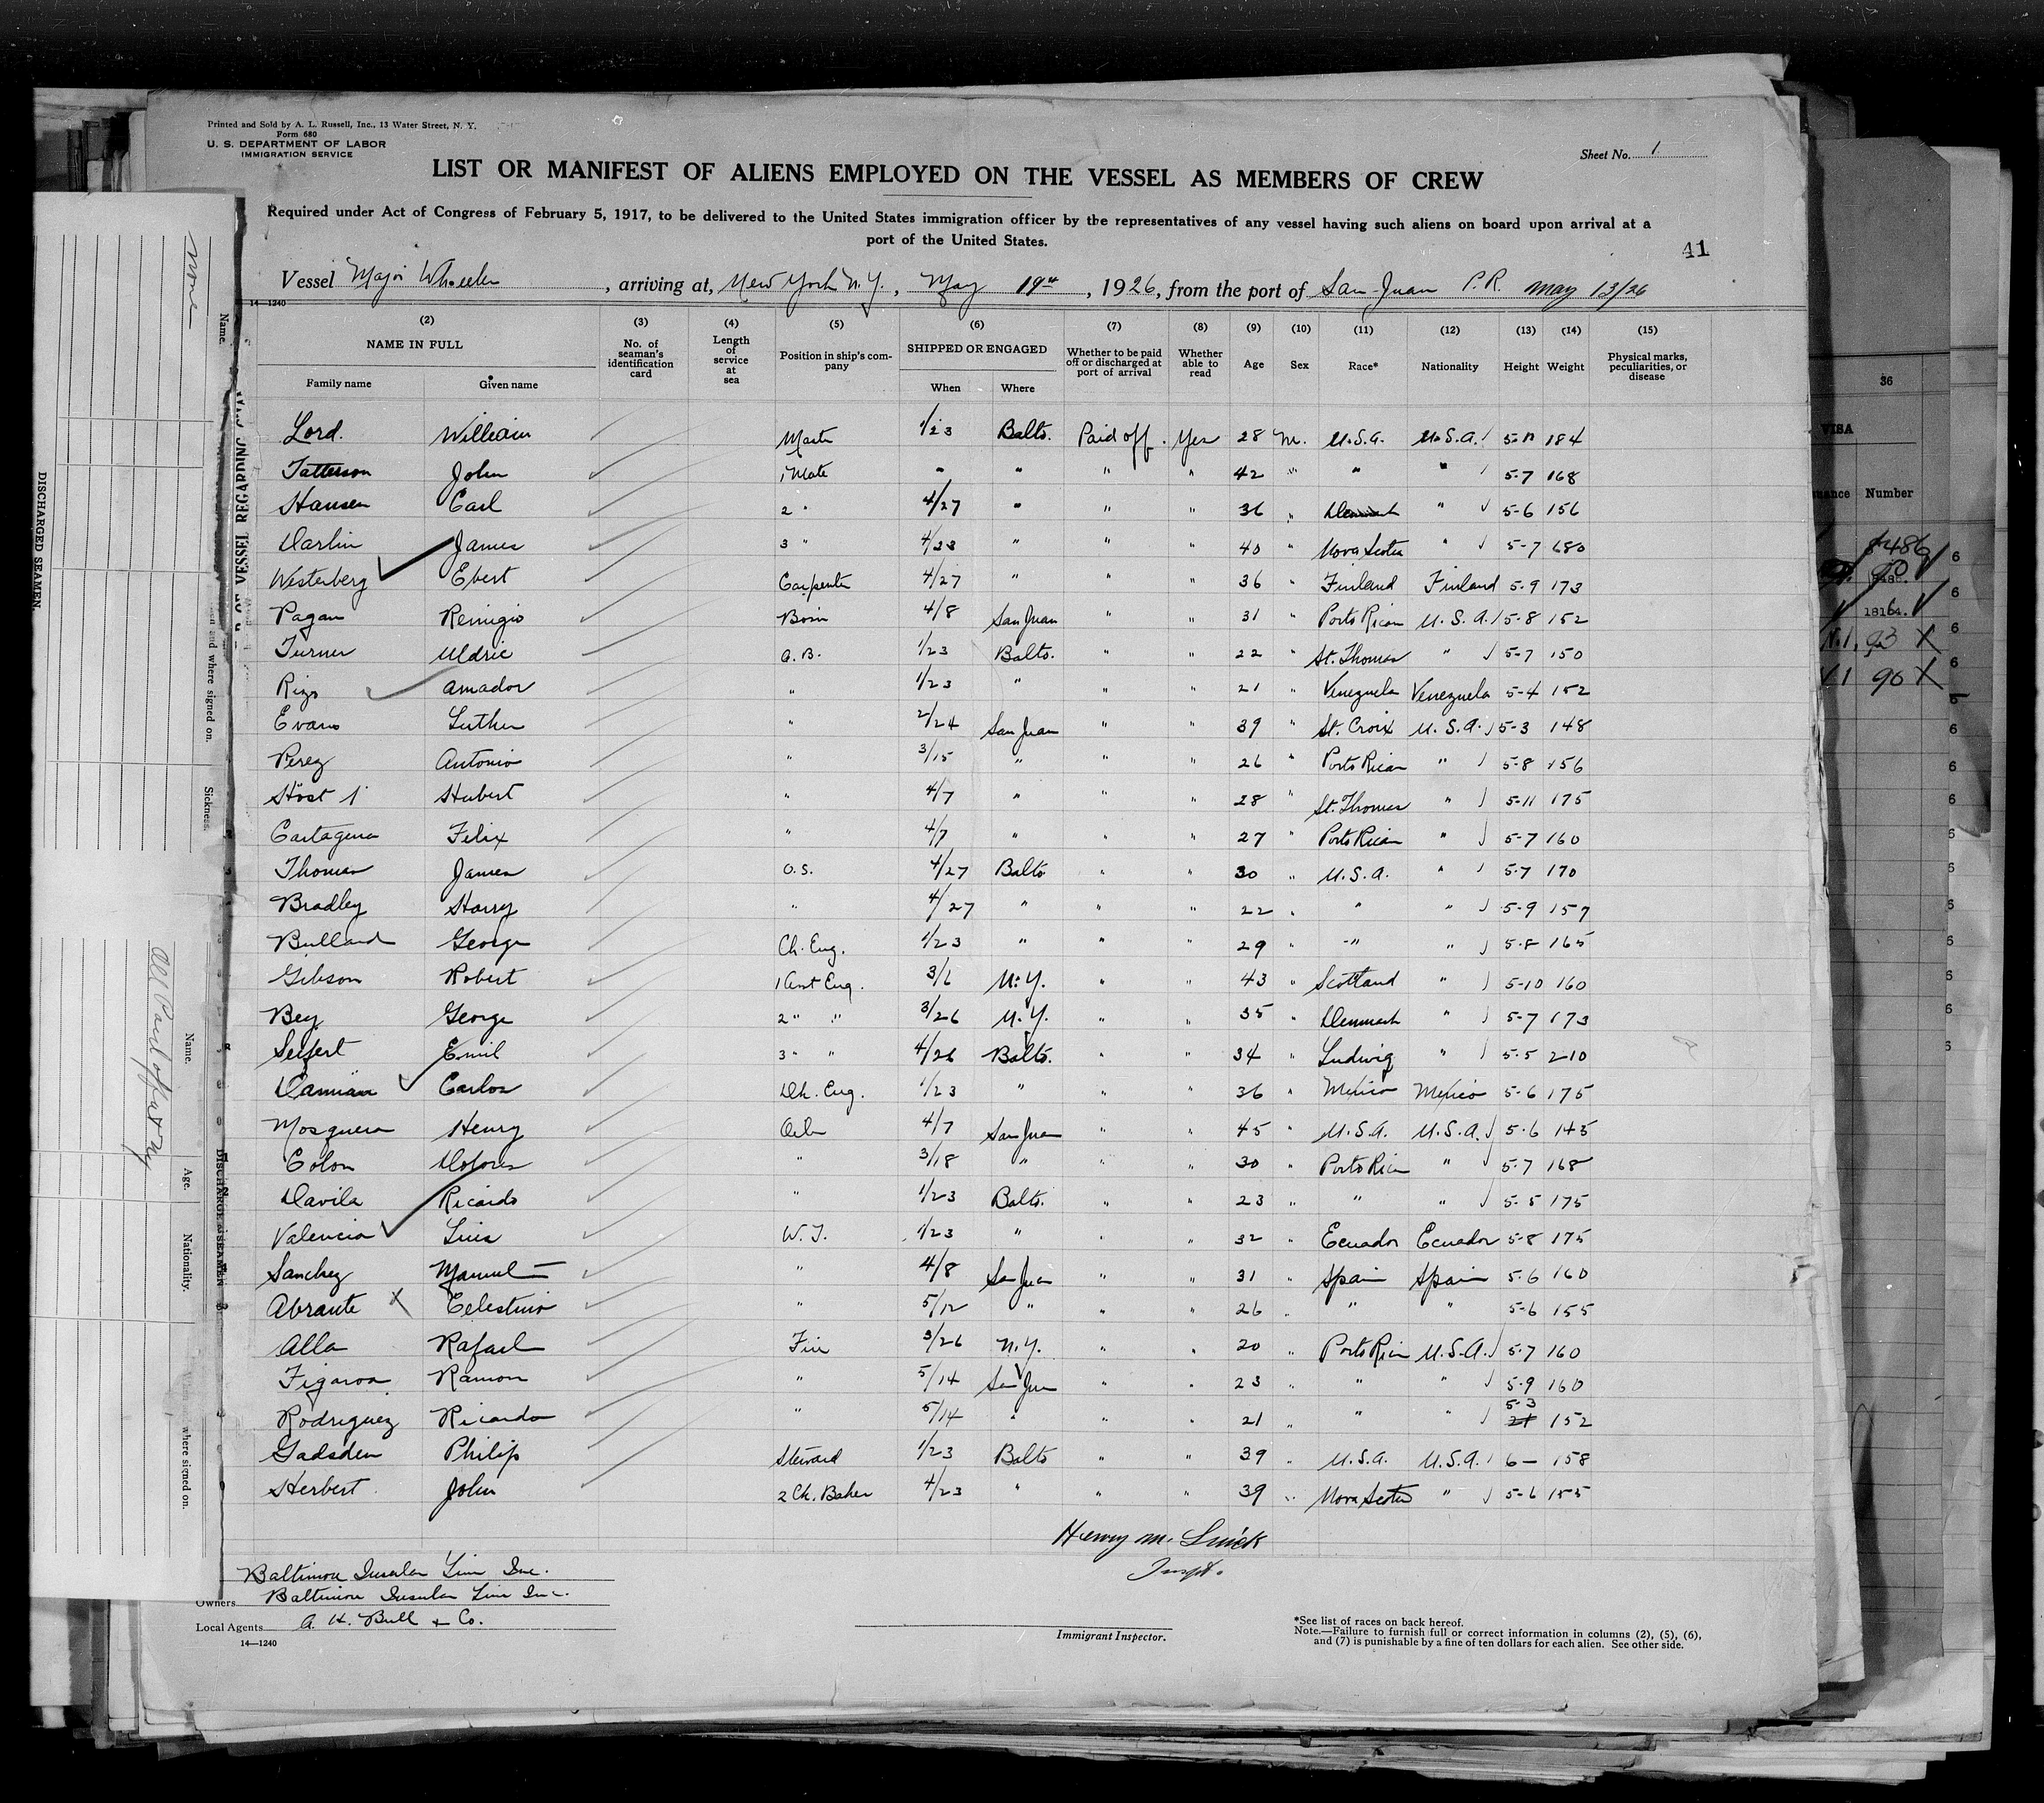 Printed and Sold by A. L. Russell, Inc., 13 Water Street, N. Y.
Form 680
U. S. DEPARTMENT OF LABOR
IMMIGRATION SERVICE
Sheet No. 1
LIST OR MANIFEST OF ALIENS EMPLOYED ON THE VESSEL AS MEMBERS OF CREW
Required under Act of Congress of February 5, 1917, to be delivered to the United States immigration officer by the representatives of any vessel having such aliens on board upon arrival at a
port of the United States.
41
Vessel Major Wheeler, arriving at, New York N.Y., May 19th, 1926, from the port of San Juan P.R. May 13/26
14—1240
(2) (3) (4) (5) (6) (7) (8) (9) (10) (11) (12) (13) (14) (15)
NAME IN FULL No. of seaman's identification card Length of service at sea Position in ship's company SHIPPED OR ENGAGED Whether to be paid off or discharged at port of arrival Whether able to read Age Sex Race* Nationality Height Weight Physical marks, peculiarities, or disease
Family name Given name When Where
Lord. William Master 1/23 Balto. Paid off. Yes 28 M. U.S.A. U.S.A. 5-11 184
Tatterson John 1 Mate " " " " 42 " " " 5-7 168
Hansen Carl 2 " 4/27 " " " 36 " Denmark " 5-6 156
Darlin James 3 " 4/23 " " " 40 " Nova Scotia " 5-7 680
Westerberg Ebert Carpenter 4/27 " " " 36 " Finland Finland 5-9 173
Pagan Remigio Bosn 4/8 San Juan " " 31 " Porto Rican U.S.A. 5-8 152
Turner Uldric A.B. 1/23 Balto. " " 22 " St. Thomas " 5-7 150
Rizo Amador " 1/23 " " " 21 " Venezuela Venezuela 5-4 152
Evans Luther " 2/24 San Juan " " 39 " St. Croix U.S.A. 5-3 148
Perez Antonio " 3/15 " " " 26 " Porto Rican " 5-8 156
Höst Hubert " 4/7 " " " 28 " St. Thomas " 5-11 175
Cartagena Felix " 4/7 " " " 27 " Porto Rican " 5-7 160
Thomas James O.S. 4/27 Balto " " 30 " U.S.A. " 5-7 170
Bradley Harry " 4/27 " " " 22 " " " 5-9 157
Bullard George Ch. Eng. 1/23 " " " 29 " " " 5-8 165
Gibson Robert 1 Asst Eng. 3/6 N.Y. " " 43 " Scotland " 5-10 160
Bey George 2 " " 3/26 N.Y. " " 35 " Denmark " 5-7 173
Seifert Emil 3 " " 4/26 Balto. " " 34 " Ludwig " 5-5 210
Damian Carlos Dk. Eng. 1/23 " " " 36 " Mexico Mexico 5-6 175
Mosquera Henry Oiler 4/7 San Juan " " 45 " U.S.A. U.S.A. 5-6 145
Colon Dolores " 3/18 " " " 30 " Porto Rican " 5-7 168
Davila Ricardo " 1/23 Balto. " " 23 " " " 5-5 175
Valencia Luis W.T. 1/23 " " " 32 " Ecuador Ecuador 5-8 175
Sanchez Manuel " 4/8 San Juan " " 31 " Spain Spain 5-6 160
Abrante X Celestino " 5/12 " " " 26 " " " 5-6 155
Alla Rafael Fire 3/26 N.Y. " " 20 " Porto Rican U.S.A. 5-7 160
Figaroa Ramon " 5/14 San Juan " " 23 " " " 5-9 160
Rodriguez Ricardo " 5/14 " " " 21 " " " 5-3 152
Gadsden Philip Steward 1/23 Balto " " 39 " U.S.A. U.S.A. 6— 158
Herbert John 2 Ck. Baker 4/23 " " " 39 " Nova Scotia " 5-6 155
Henry M.
Inspt.
Baltimore Insular Line Inc.
Owners Baltimore Insular Line Inc.
Local Agents A. H. Bull & Co.
14—1240
Immigrant Inspector.
*See list of races on back hereof.
Note.—Failure to furnish full or correct information in columns (2), (5), (6),
and (7) is punishable by a fine of ten dollars for each alien. See other side.
DISCHARGED SEAMEN.
None
Name.
and where signed on.
Sickness.
OF VESSEL REGARDING
All Paid off at NY
Name.
Age.
Nationality.
where signed on.
DISCHARGED SEAMEN
36
VISA
Number
18164.
93 X
90 X